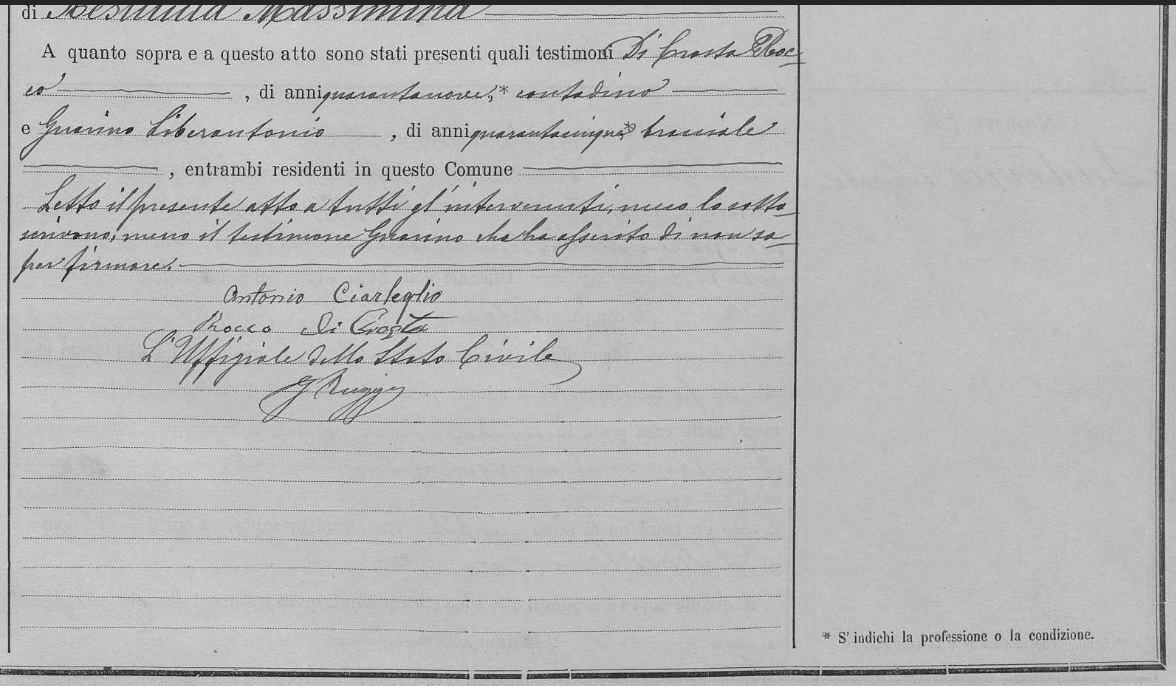 di Restituta Massimina
A quanto sopra e a questo atto sono stati presenti quali testimoni Di Crosta Roc-
co, di anni quarantanove,* contadino
e Guarino Liberantonio, di anni quarantacinque,* bracciale
, entrambi residenti in questo Comune
Letto il presente atto a tutti gl'intervenuti, meco lo sotto-
scrivono, meno il testimone Guarino che ha asserito di non sa-
per firmare.
Antonio Ciarleglio
Rocco Di Crosta
L'Uffiziale dello Stato Civile
* S'indichi la professione o la condizione.